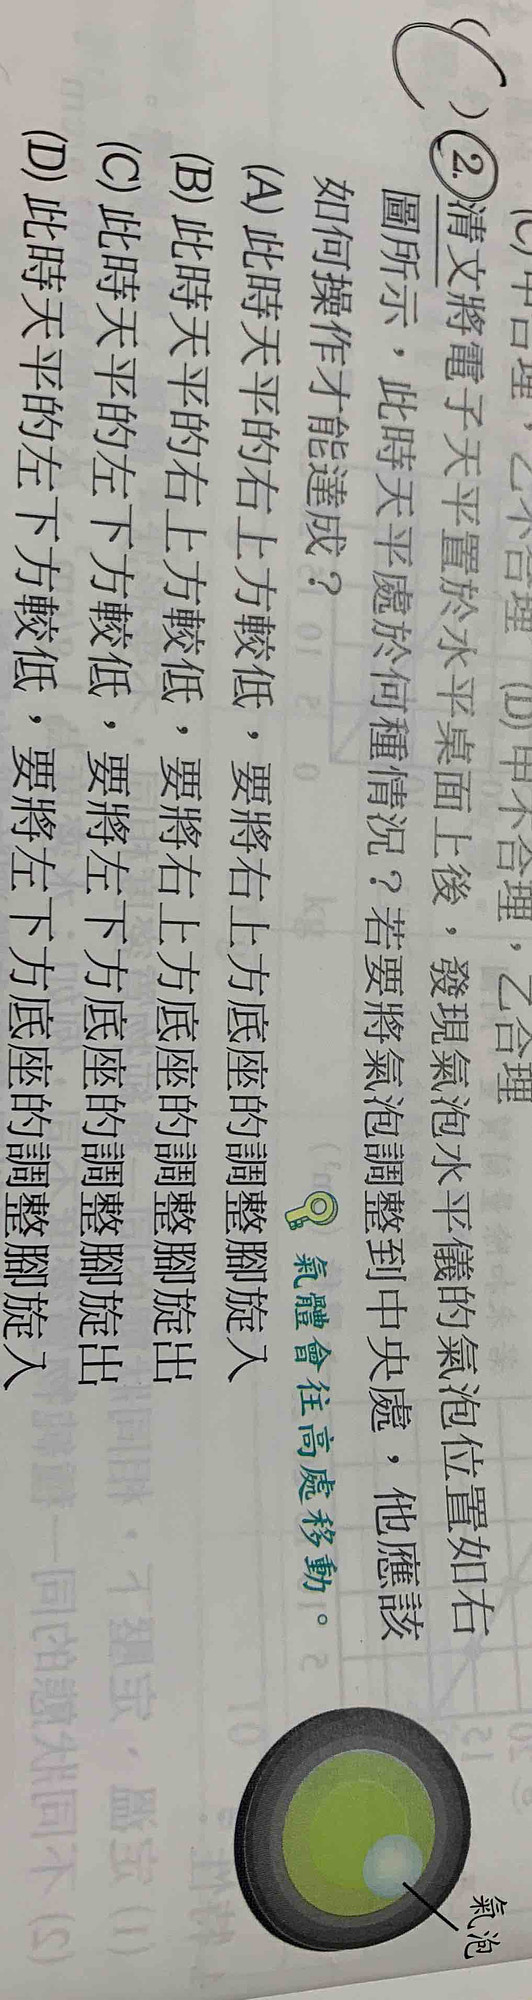 (C)甲合理，乙不合理 (D)甲不合理，乙合理
( C ) 2. 清文將電子天平置於水平桌面上後，發現氣泡水平儀的氣泡位置如右
圖所示，此時天平處於何種情況？若要將氣泡調整到中央處，他應該
如何操作才能達成？
氣體會往高處移動。
(A) 此時天平的右上方較低，要將右上方底座的調整腳旋入
(B) 此時天平的右上方較低，要將右上方底座的調整腳旋出
(C) 此時天平的左下方較低，要將左下方底座的調整腳旋出
(D) 此時天平的左下方較低，要將左下方底座的調整腳旋入
氣泡